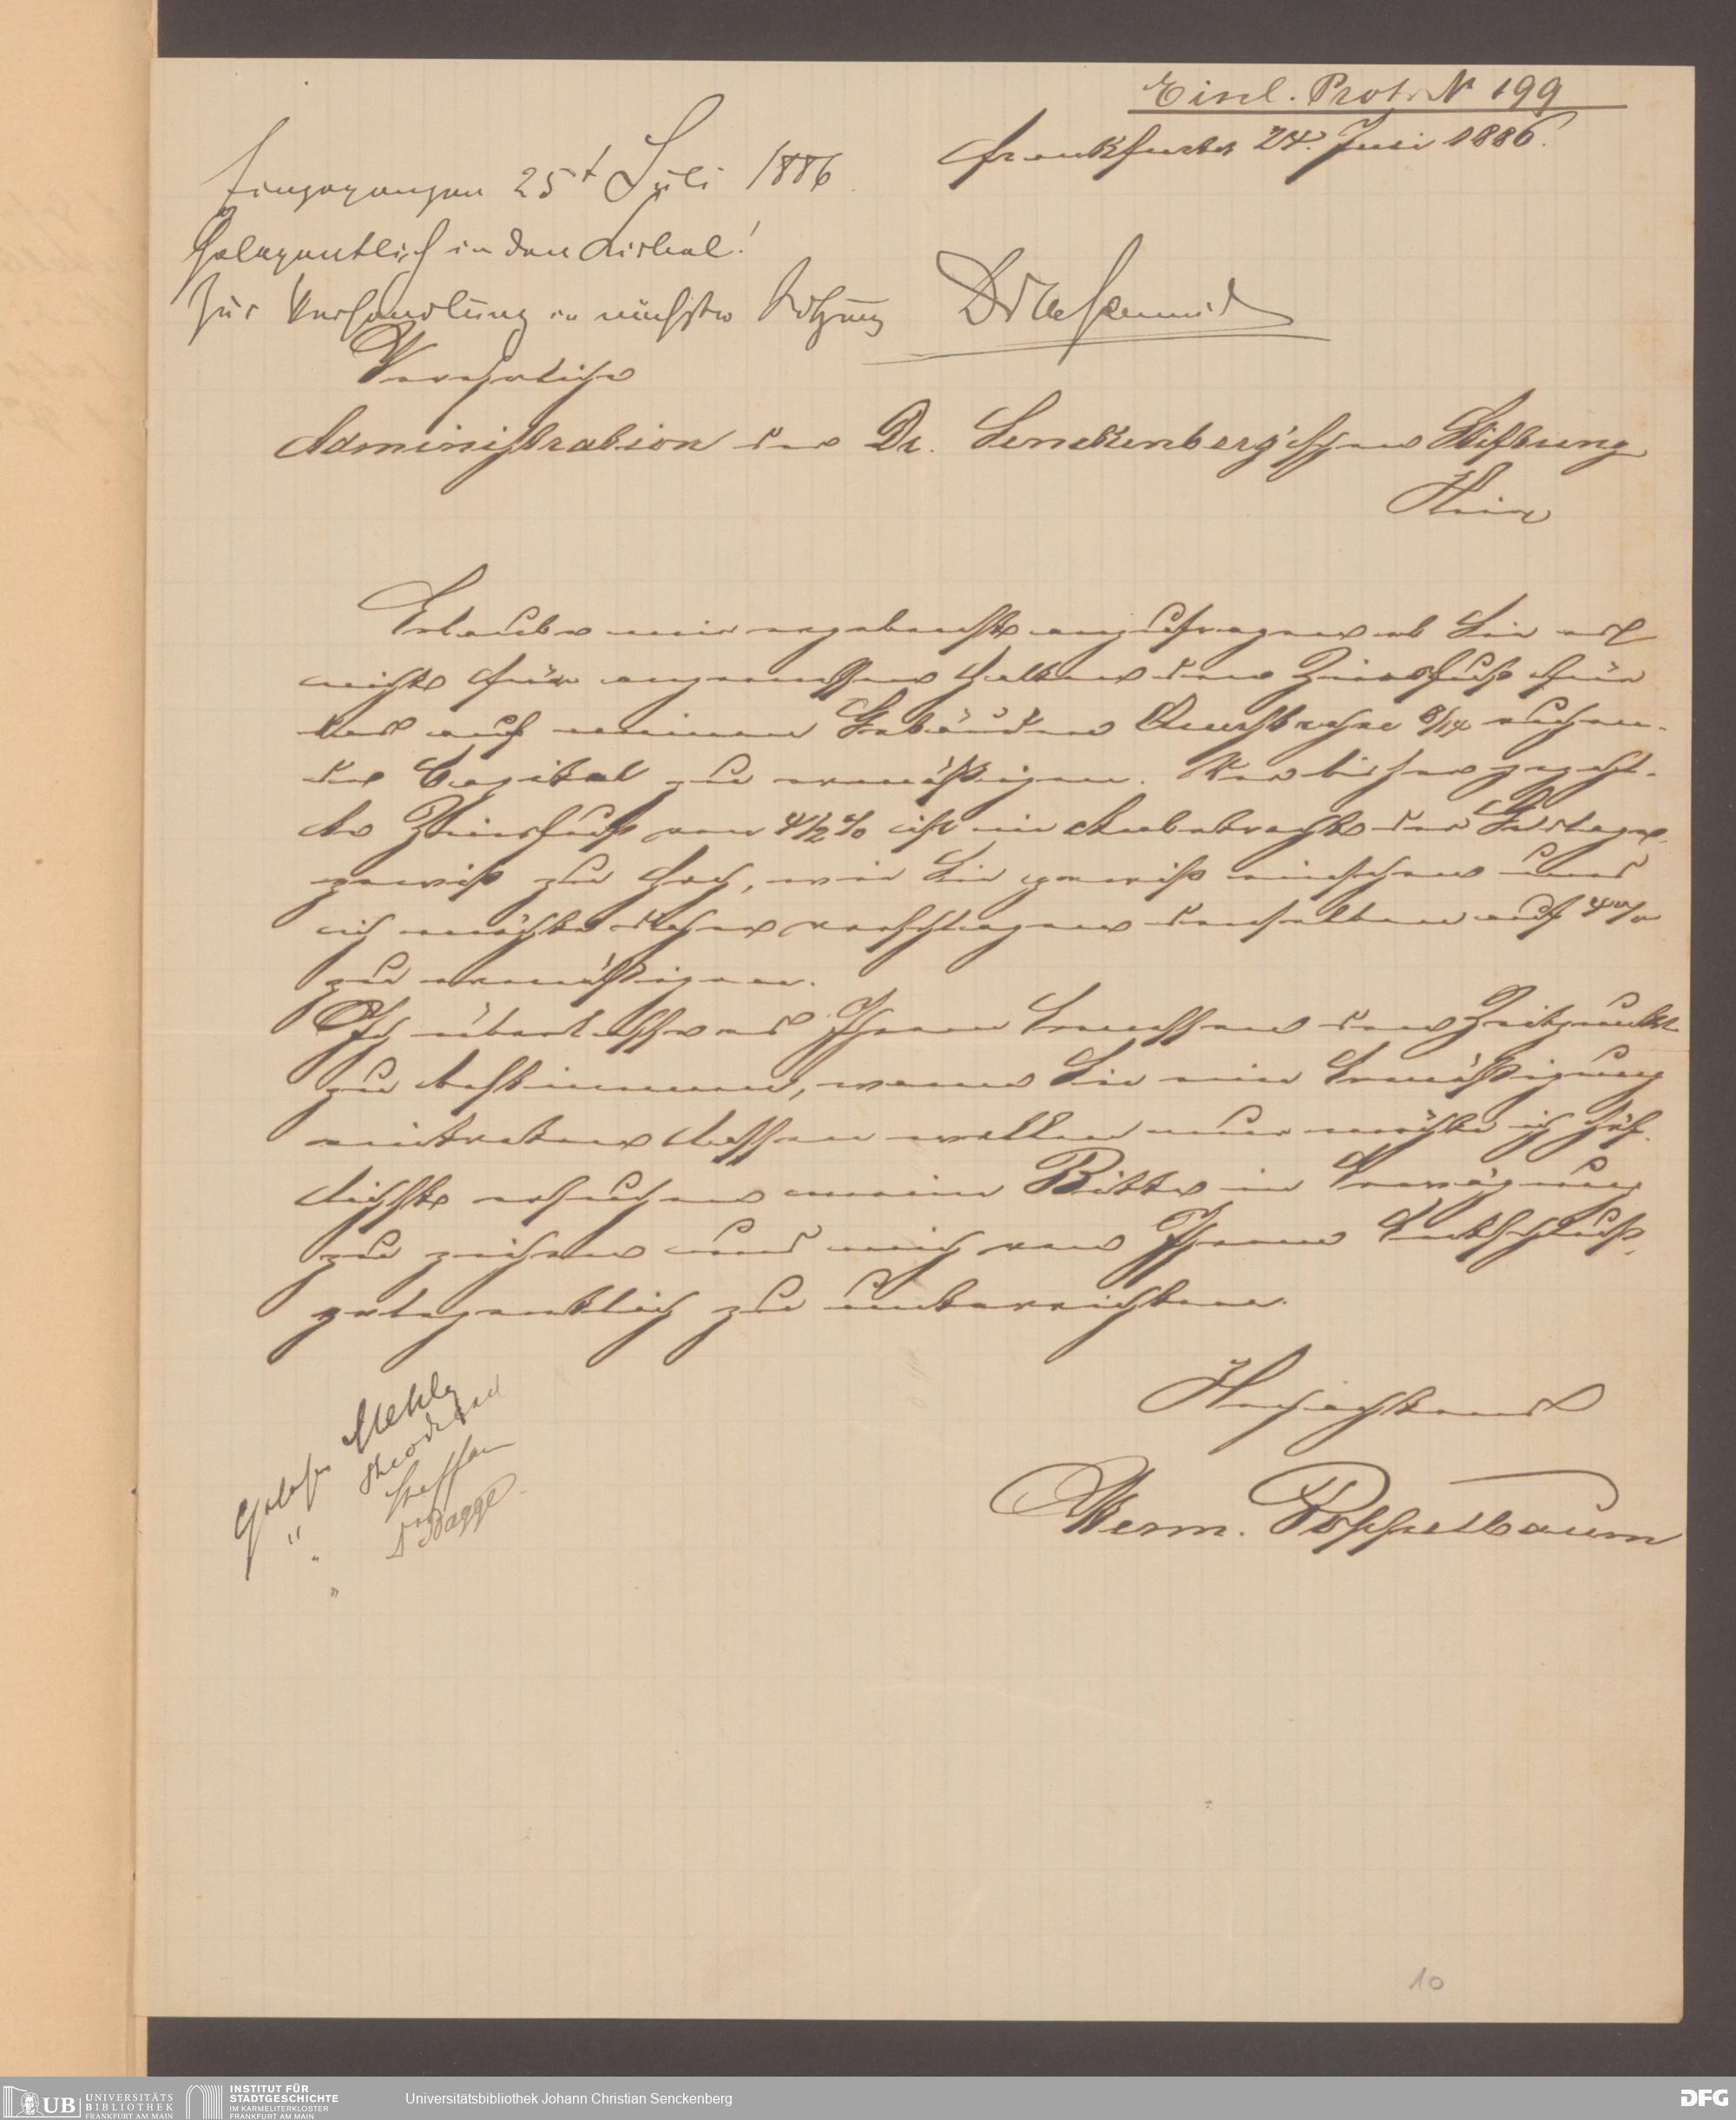 Einl. Prot. N 199
Frankfurt 24. Juli 1886.
Eingegangen 25t Juli 1886.
Gelegentlich in den Lirkal!
Zur Verhandlung in nächster Sitzung
Verehrliche
Administration der Dr. Senckenberg'schen Stiftung
Hier
Erlaube mir ergebenst anzufragen ob Sie es
nicht für angemessen halten den Zinsfuß für
das auf meinen Gebäuden 8/14 ruhen-
de Capital zu ermäßigen. Der bisher gezahl-
te Zinsfuß von 4 1/2 % ist in Anbetracht der
gewiß zu hoch, wie Sie gewiß einsehen und
ich möchte daher vorschlagen denselben auf 4%
zu ermäßigen.
Ich überlasse es Ihrem Ermessen den Zeitpunkt
zu bestimmen, wann Sie eine Ermäßigung
eintreten lassen wollen nur möchte ich höf-
lichst ersuchen meine Bitte in Erwägung
zu ziehen und mich von Ihrem Entschluß,
gelegentlich zu unterrichten.
Hochachtend
Herm. Poppelbaum
Gelesen Mehly
"
"
" Bagge
10
UB UNIVERSITÄTS
BIBLIOTHEK
FRANKFURT AM MAIN
INSTITUT FÜR
STADTGESCHICHTE
IM KARMELITERKLOSTER
FRANKFURT AM MAIN
Universitätsbibliothek Johann Christian Senckenberg
DFG